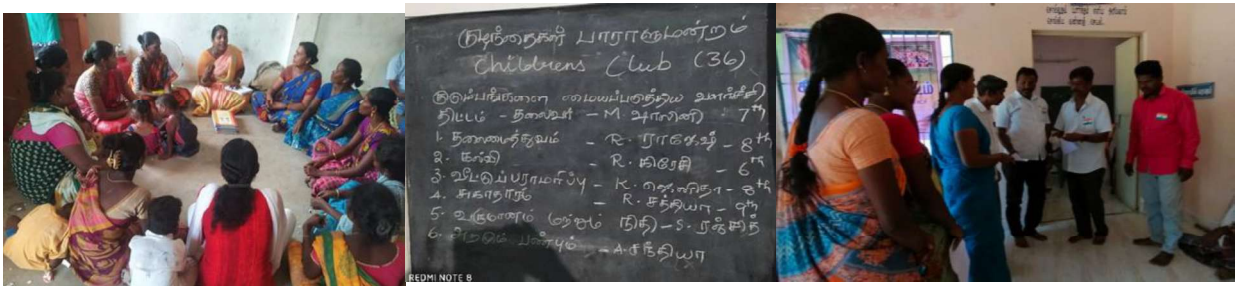 குழந்தைகள் பாராளுமன்றம்
Childrens Club (36)
குடும்பங்களை மையப்படுத்திய வளர்ச்சி
திட்டம் - தலைவர் - M. ஷாலினி 7th
1. தலைமைத்துவம் - R. ராகேஷ் - 8th
2. கல்வி - R. கிரேசி - 6th
3. வீட்டுப்பராமரிப்பு - K. ஜெனிதா - 8th
4. சுகாதாரம் - R. சத்தியா - 9th
5. வருமானம் மற்றும் நிதி - S. ரஞ்சித்
6. பண்பும் - A. சந்தியா
REDMI NOTE 8